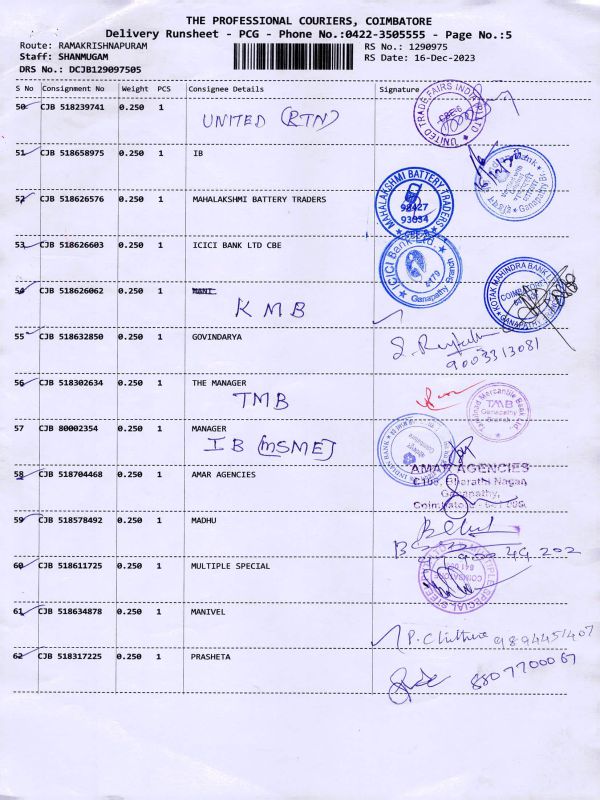 THE PROFESSIONAL COURIERS, COIMBATORE
Delivery Runsheet - PCG - Phone No.:0422-3505555 - Page No.:5
Route: RAMAKRISHNAPURAM RS No.: 1290975
Staff: SHANMUGAM RS Date: 16-Dec-2023
DRS No.: DCJB129097505
S No Consignment No Weight PCS Consignee Details Signature
50 CJB 518239741 0.250 1 UNITED (RTN)
UNITED TRADE FAIRS INDIA (P) LTD
51 CJB 518658975 0.250 1 IB
Ganapathy
52 CJB 518626576 0.250 1 MAHALAKSHMI BATTERY TRADERS
MAHALAKSHMI BATTERY TRADERS
98427
93034
53 CJB 518626603 0.250 1 ICICI BANK LTD CBE
ICICI Bank Ltd.
Ganapathy Branch
54 CJB 518626062 0.250 1 MANI
KMB
KOTAK MAHINDRA BANK LTD
COIMBATORE
GANAPATHY
55 CJB 518632850 0.250 1 GOVINDARYA
9003313081
56 CJB 518302634 0.250 1 THE MANAGER
TMB
Tamilnad Mercantile Bank Ltd.
TMB
Ganapathy
Branch
57 CJB 80002354 0.250 1 MANAGER
IB (MSME)
INDIAN BANK
58 CJB 518704468 0.250 1 AMAR AGENCIES
AMAR AGENCIES
C108, Bharathi Nagar,
Ganapathy,
Coimbatore - 641 006.
59 CJB 518578492 0.250 1 MADHU
60 CJB 518611725 0.250 1 MULTIPLE SPECIAL
MULTIPLE SPECIAL
COIMBATORE
61 CJB 518634878 0.250 1 MANIVEL
62 CJB 518317225 0.250 1 PRASHETA